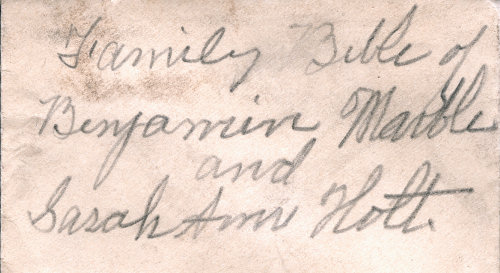 Family Bible of
Benjamin Marble
and
Sarah Ann Holt.